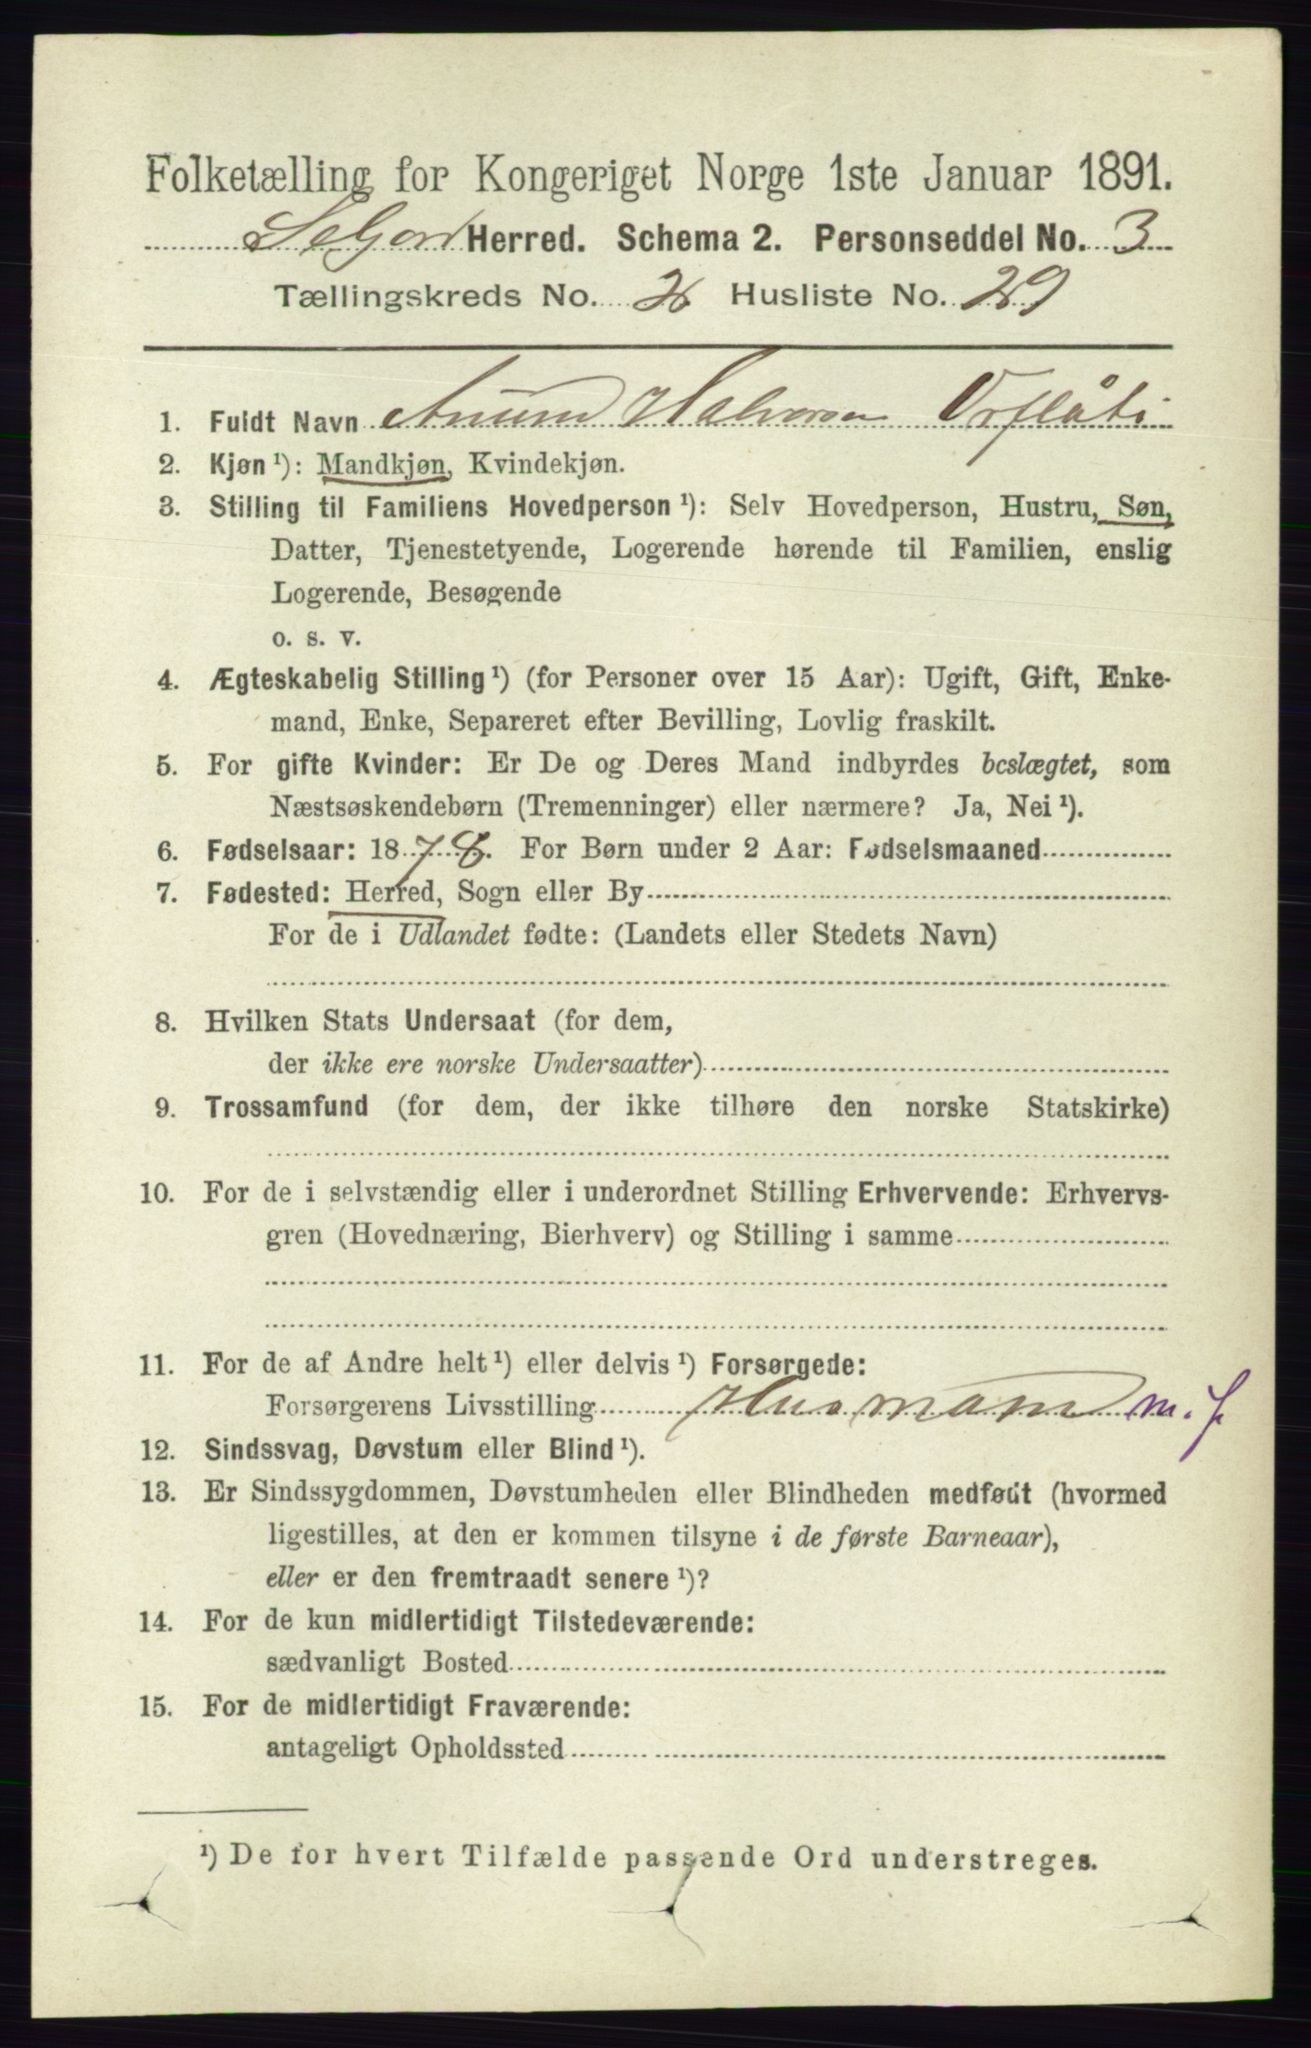 Folketælling for Kongeriget Norge 1ste Januar 1891.
Seljord Herred. Schema 2. Personseddel No. 3
Tællingskreds No. 2 Husliste No. 29
1. Fuldt Navn Aanund Halvorsen Orflåti
2. Kjøn ¹): Mandkjøn, Kvindekjøn.
3. Stilling til Familiens Hovedperson ¹): Selv Hovedperson, Hustru, Søn,
Datter, Tjenestetyende, Logerende hørende til Familien, enslig
Logerende, Besøgende
o. s. v.
4. Ægteskabelig Stilling ¹) (for Personer over 15 Aar): Ugift, Gift, Enke-
mand, Enke, Separeret efter Bevilling, Lovlig fraskilt.
5. For gifte Kvinder: Er De og Deres Mand indbyrdes beslægtet, som
Næstsøskendebørn (Tremenninger) eller nærmere? Ja, Nei ¹).
6. Fødselsaar: 1878. For Børn under 2 Aar: Fødselsmaaned
7. Fødested: Herred, Sogn eller By
For de i Udlandet fødte: (Landets eller Stedets Navn)
8. Hvilken Stats Undersaat (for dem,
der ikke ere norske Undersaatter)
9. Trossamfund (for dem, der ikke tilhøre den norske Statskirke)
10. For de i selvstændig eller i underordnet Stilling Erhvervende: Erhvervs-
gren (Hovednæring, Bierhverv) og Stilling i samme
11. For de af Andre helt ¹) eller delvis ¹) Forsørgede:
Forsørgerens Livsstilling Husmand m. j
12. Sindssvag, Døvstum eller Blind ¹).
13. Er Sindssygdommen, Døvstumheden eller Blindheden medfødt (hvormed
ligestilles, at den er kommen tilsyne i de første Barneaar),
eller er den fremtraadt senere ¹)?
14. For de kun midlertidigt Tilstedeværende:
sædvanligt Bosted
15. For de midlertidigt Fraværende:
antageligt Opholdssted
¹) De for hvert Tilfælde passende Ord understreges.